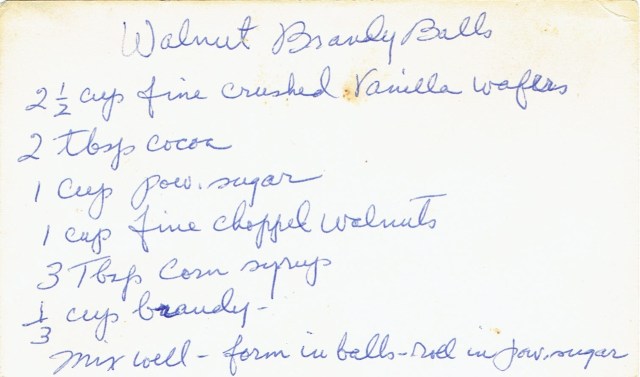 Walnut Brandy Balls
2 1/2 cup fine crushed Vanilla wafers
2 tbsp cocoa
1 cup pow. sugar
1 cup fine chopped walnuts
3 Tbsp Corn syrup
1/3 cup brandy-
Mix well - form in balls - roll in pow. sugar